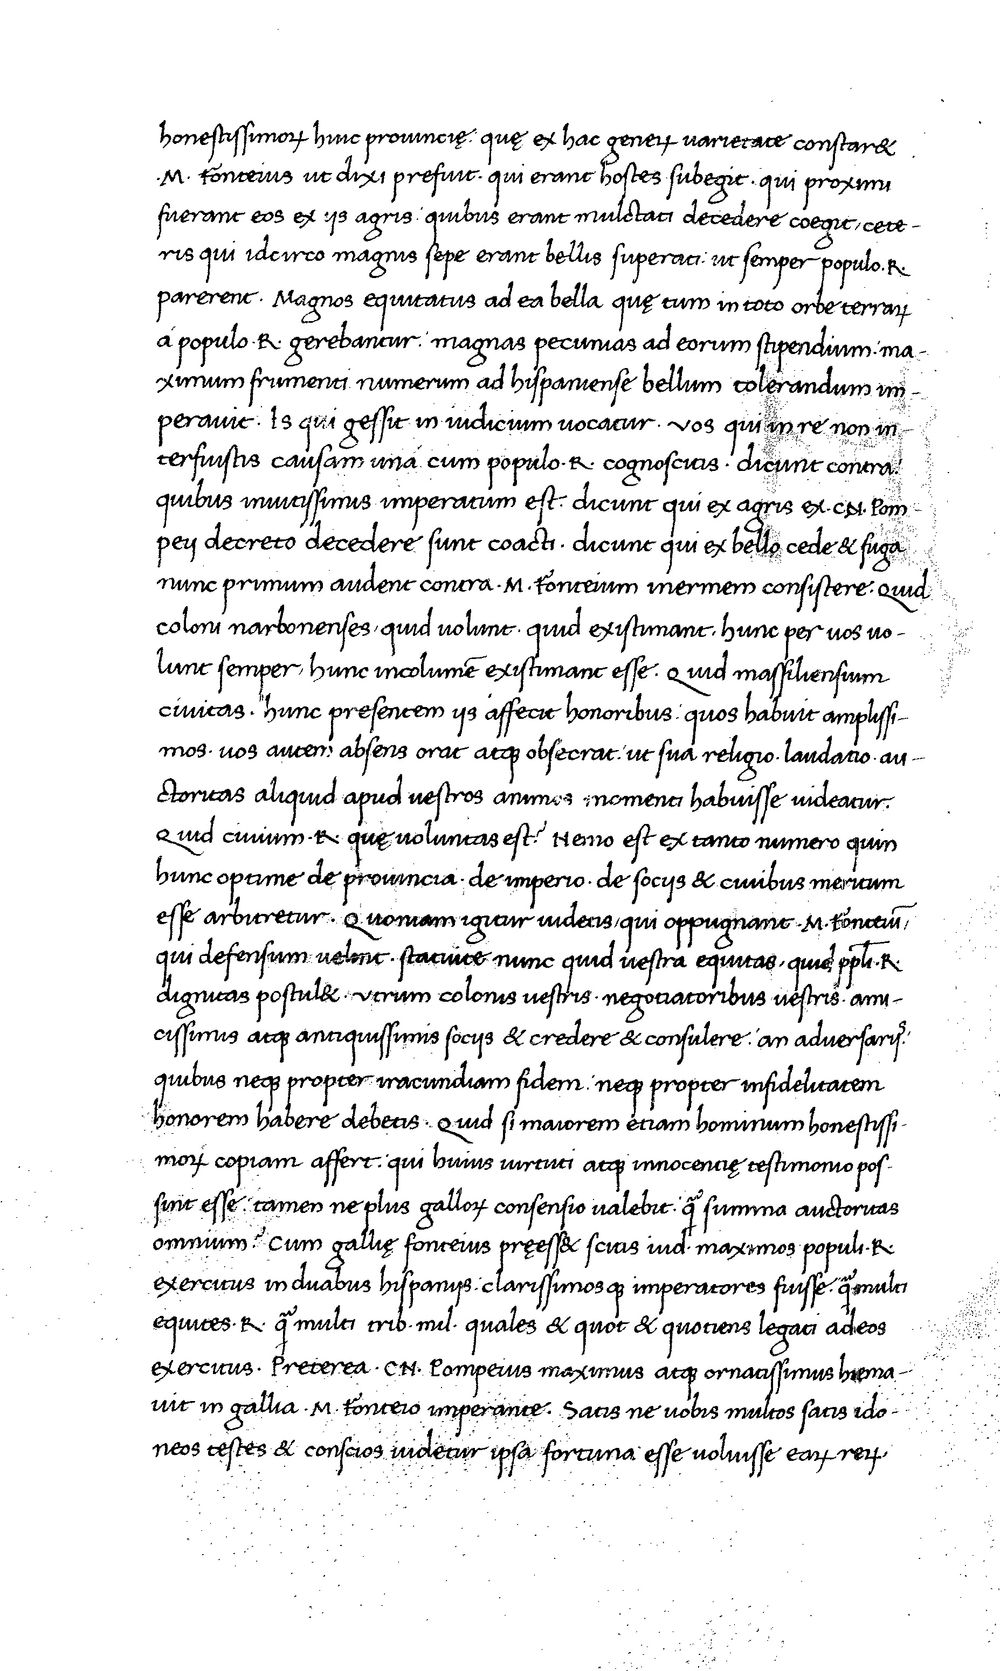 honestissimoꝝ huic prouincię. quę ex hac generꝝ uarietate constar&
.M. Fonteius ut dixi prefuit. qui erant hostes subegit. qui proximi
fuerant eos ex ijs agris: quibus erant mulctati decedere coegit, cete-
ris qui idcirco magnis sepe erant bellis superati: ut semper populo.R.
parerent. Magnos equitatus ad ea bella quę tum in toto orbe terraꝝ
á populo.R. gerebantur: magnas pecunias ad eorum stipendium: ma-
ximum frumenti numerum ad hispaniense bellum tolerandum im-
perauit. Is qui gessit in iudicium uocatur. Vos qui in re non in-
terfuistis causam uná cum populo.R. cognoscitis. dicunt contra:
quibus inuitissimis imperatum est: dicunt qui ex agris ex.CN. Pom-
peij decreto decedere sunt coacti. dicunt qui ex bello cede & fuga
nunc primum audent contra.M.Fonteium inermem consistere. Quid
coloni narbonenses, quid uolunt. quid existimant, hunc per uos uo-
lunt semper, hunc incolumē existimant esse. Quid massiliensium
ciuitas. hunc presentem ijs affecit honoribus: quos habuit amplissi-
mos. uos autem absens orat atqꝫ obsecrat: ut sua religio. laudatio. au-
ctoritas aliquid apud uestros animos momenti habuisse uideatur.
Quid ciuium.R. quę uoluntas est? Nemo est ex tanto numero quin
hunc optime de prouincia. de imperio. de socijs & ciuibus meritum
esse arbitretur. Quoniam igitur uidetis, qui oppugnant .M. Fonteiū,
qui defensum uelint. statuite nunc quid uestra equitas, quid ppłi.R.
dignitas postul&. Vtrum colonis uestris. negotiatoribus uestris. ami-
cissimis atqꝫ antiquissimis socijs & credere & consulere: an aduersarijs?
quibus neqꝫ propter iracundiam fidem: neqꝫ propter infidelitatem
honorem habere debetis. Quid si maiorem etiam hominum honestissi-
moꝝ copiam affert: qui huius uirtuti atqꝫ innocentię testimonio pos-
sint esse: tamen ne plus galloꝝ consensio ualebit: ꝗ̃ summa auctoritas
omnium? Cum gallię fonteius pręess& scitis iud. maximos populi.R.
exercitus in duabus hispanijs: clarissimosqꝫ imperatores fuisse: ꝗ̃ multi
equites.R. ꝗ̃ multi trib.mil. quales & quot & quotiens legati ad eos
exercitus. Preterea.CN. Pompeius maximus atqꝫ ornatissimus hiema-
uit in gallia.M.Fonteio imperante. Satis ne uobis multos satis ido-
neos testes & conscios uidetur ipsa fortuna esse uoluisse eaꝝ reꝝ.